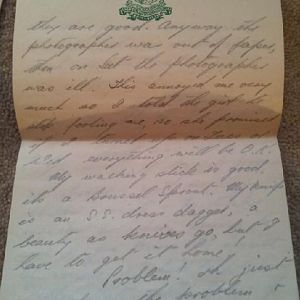 they are good. Anyway the
photographer was out of paper,
then on Sat the photographer
was ill! This annoyed me very
much so I told the girl to
stop fooling me, so she promised
if I turned up on Tues or
Wed everything will be O.K.
My walking stick is good,
its a Brussel Sprout. My knife
is an S.S. dress dagger, a
beauty as knives go, but I
have to get it home.
Problem! Oh just
the problem